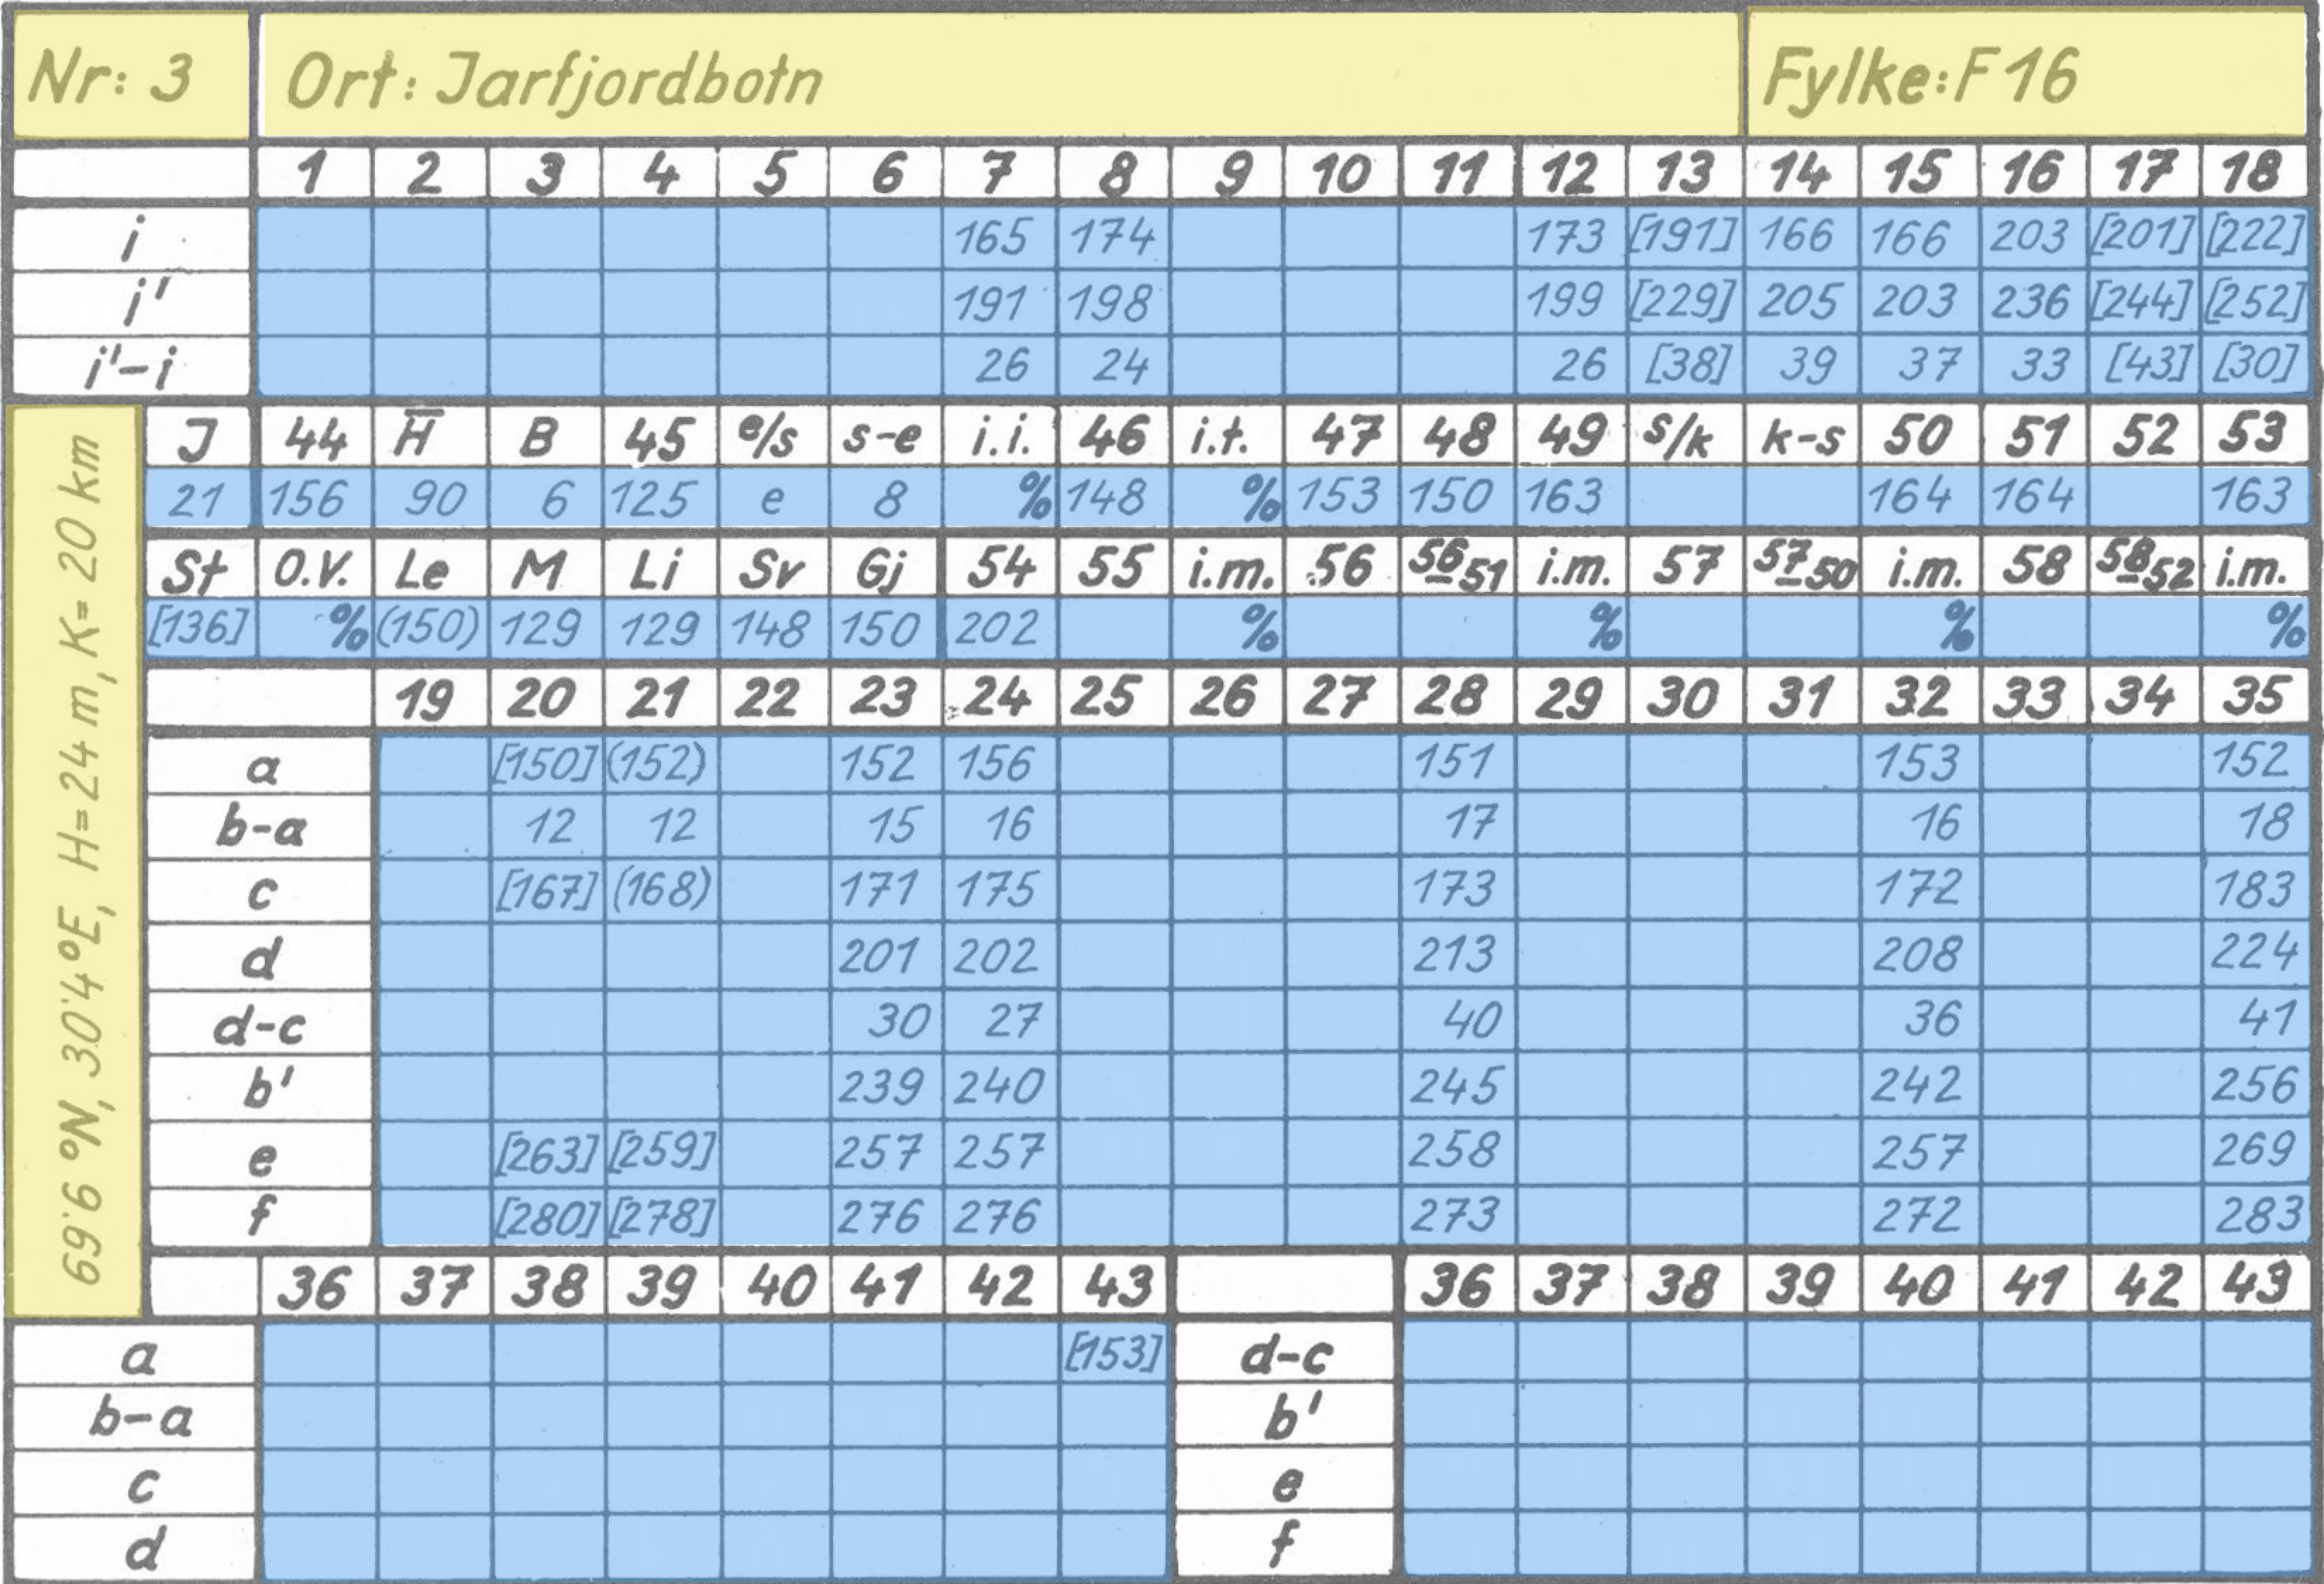 Nr: 3 Ort: Jarfjordbotn Fylke: F 16
1 2 3 4 5 6 7 8 9 10 11 12 13 14 15 16 17 18
i 165 174 173 [191] 166 166 203 [201] [222]
i' 191 198 199 [229] 205 203 236 [244] [252]
i'-i 26 24 26 [38] 39 37 33 [43] [30]
J 44 H̅ B 45 e/s s-e i.i. 46 i.t. 47 48 49 s/k k-s 50 51 52 53
21 156 90 6 125 e 8 % 148 % 153 150 163 164 164 163
St O.V. Le M Li Sv Gj 54 55 i.m. 56 56-51 i.m. 57 57-50 i.m. 58 58-52 i.m.
[136] % (150) 129 129 148 150 202 % % % %
19 20 21 22 23 24 25 26 27 28 29 30 31 32 33 34 35
a [150] (152) 152 156 151 153 152
b-a 12 12 15 16 17 16 18
c [167] (168) 171 175 173 172 183
d 201 202 213 208 224
d-c 30 27 40 36 41
b' 239 240 245 242 256
e [263] [259] 257 257 258 257 269
f [280] [278] 276 276 273 272 283
69.6 °N, 30.4 °E, H=24 m, K= 20 km
36 37 38 39 40 41 42 43 36 37 38 39 40 41 42 43
a [153] d-c
b-a b'
c e
d f